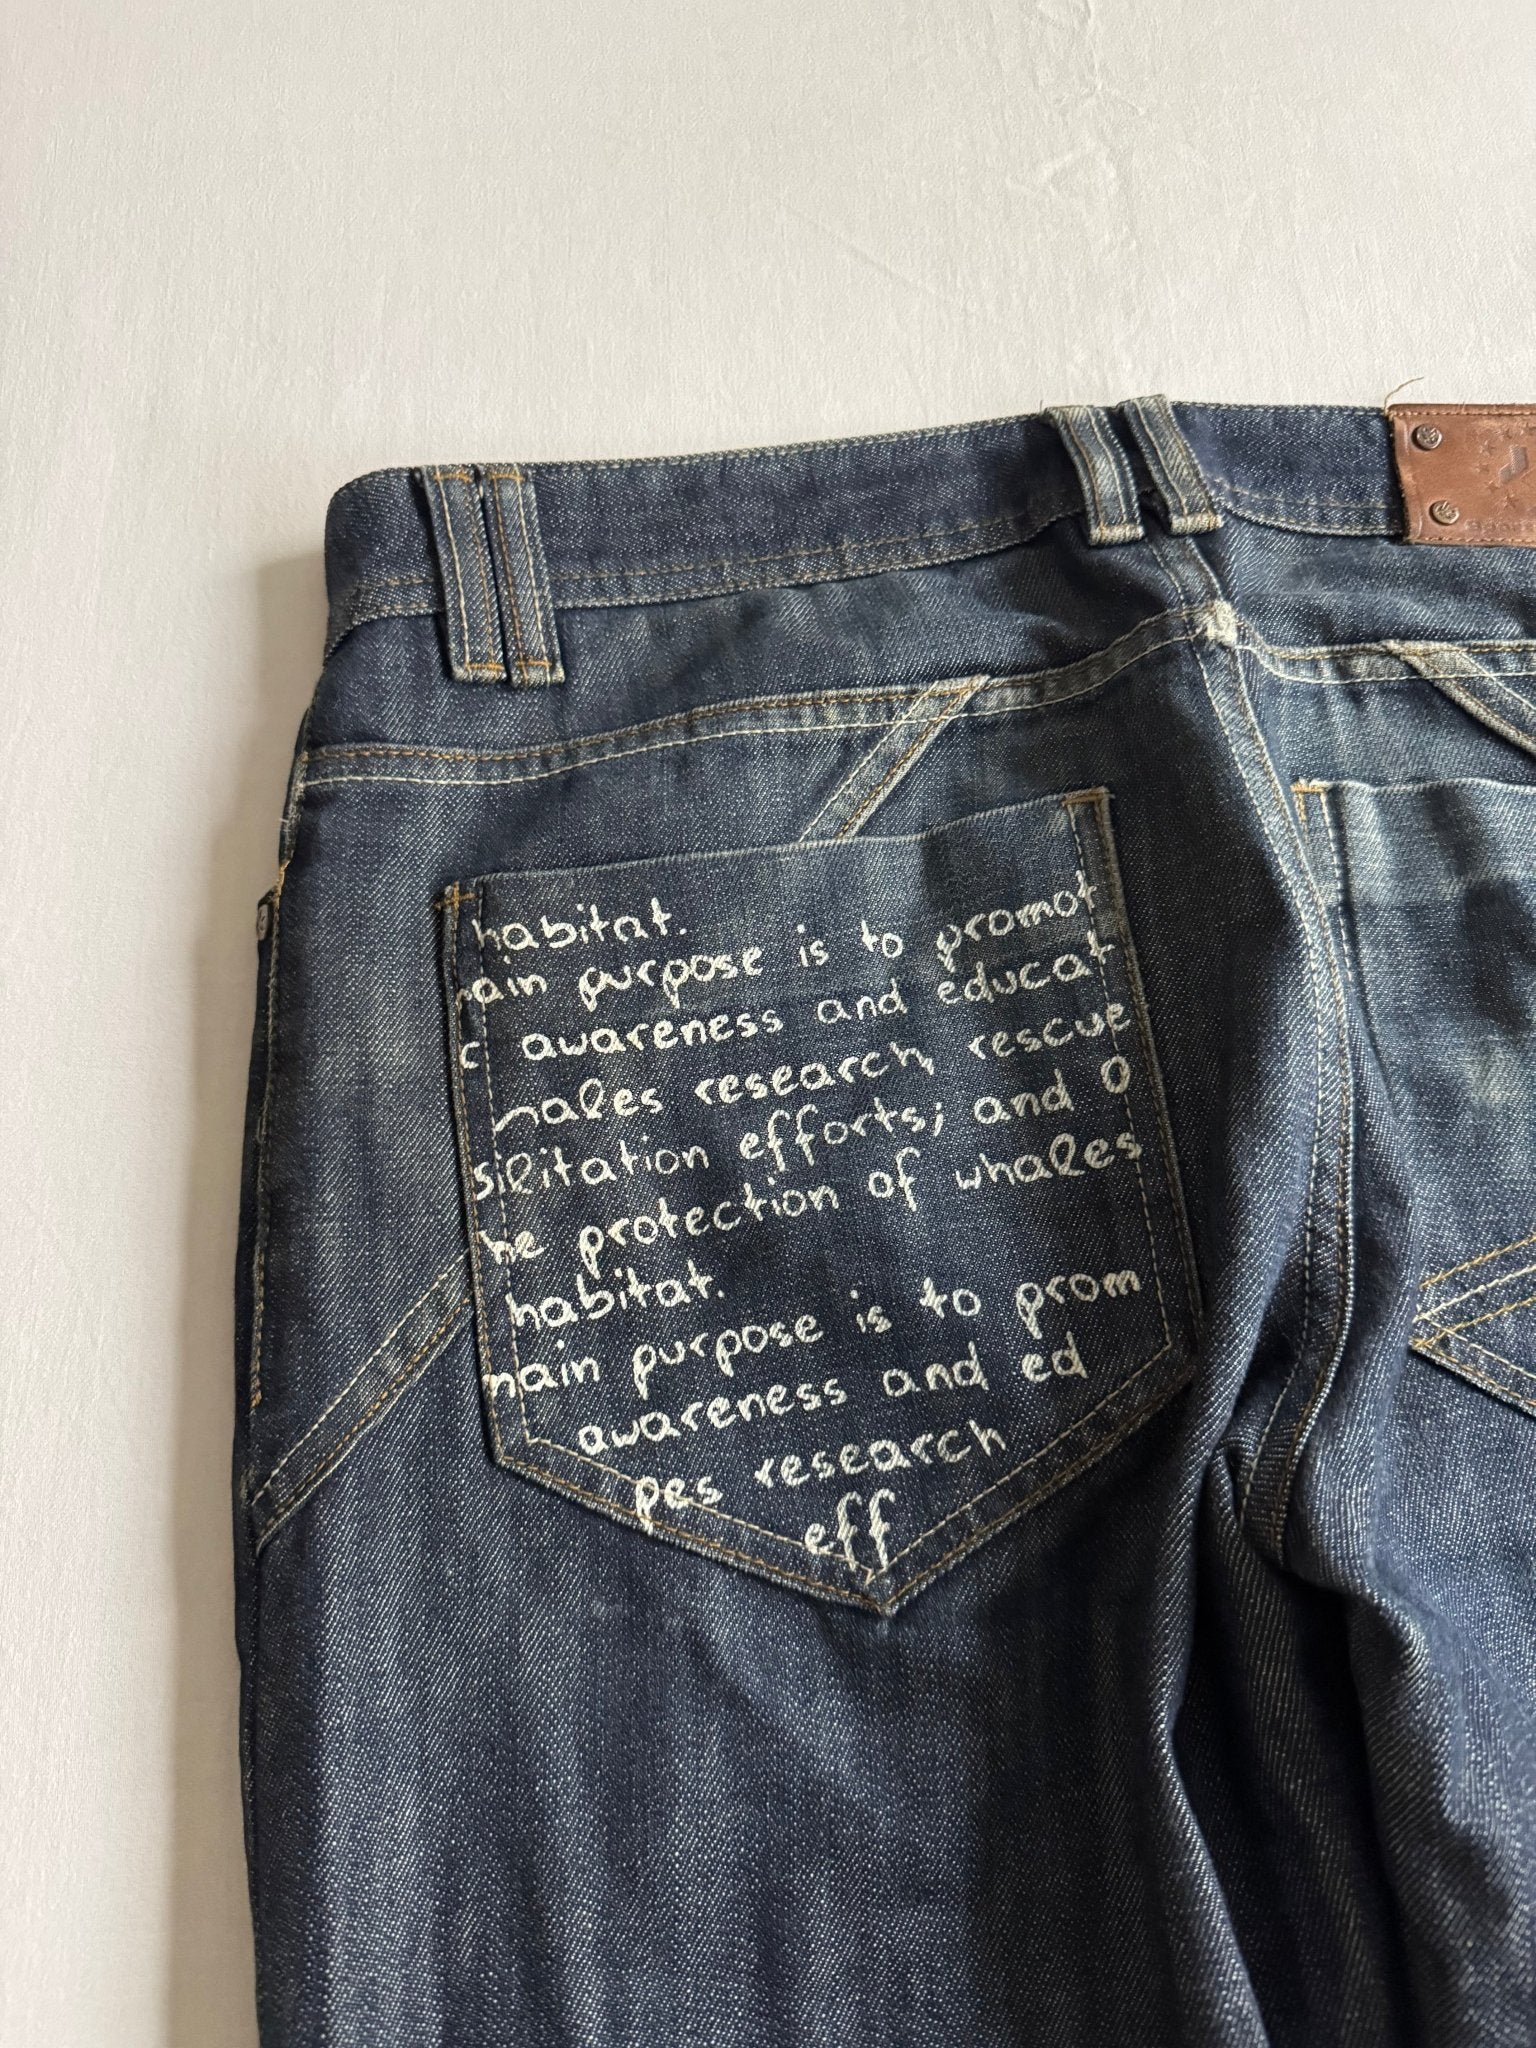 habitat.
ain purpose is to promot
c awareness and educat
hales research, rescue
silitation efforts; and O
he protection of whales
habitat.
main purpose is to prom
awareness and ed
pes research
eff